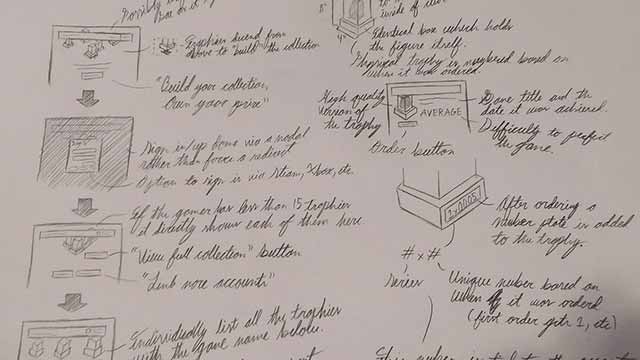 Possibly
Trophies descend from
above to "build" the collection
"Build your collection,
Own your prize"
Sign in/up done via a modal
rather than force a redirect
Option to sign in via Steam, Xbox, etc.
If the gamer has less than 15 trophies
it directly shows each of them here
"View full collection" button
"Link more accounts"
Individually list all the trophies
with the game name below.
8"
4"
inside of
Identical box which holds
the figure itself.
Physical trophy is numbered based on
when it was ordered.
High quality
version of
the trophy
AVERAGE
Game title and the
date it was achieved.
Difficulty to perfect
the game.
Order button
After ordering a
number plate is added
to the trophy.
# x #
Unique number based on
when it was ordered
(first order gets 1, etc)
This number